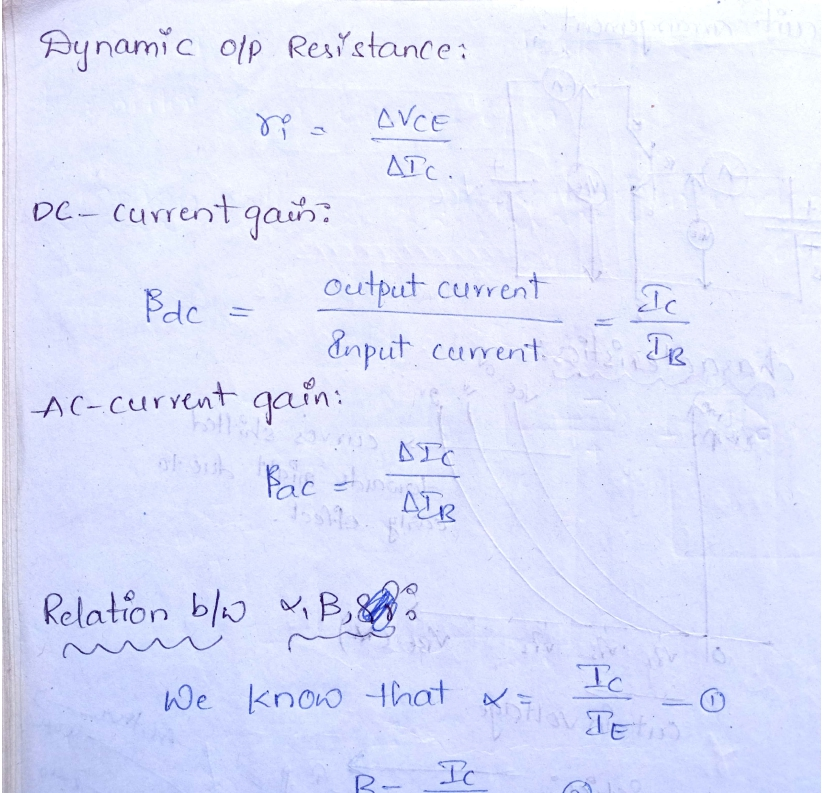 Dynamic o/p Resistance:
ri = ΔVCE / ΔIC.
DC- current gain:
βdc = output current / Input current. = IC / IB
AC-current gain:
βac = ΔIC / ΔIB
Relation b/w α, β,
We know that α = IC / IE - ①
β = IC